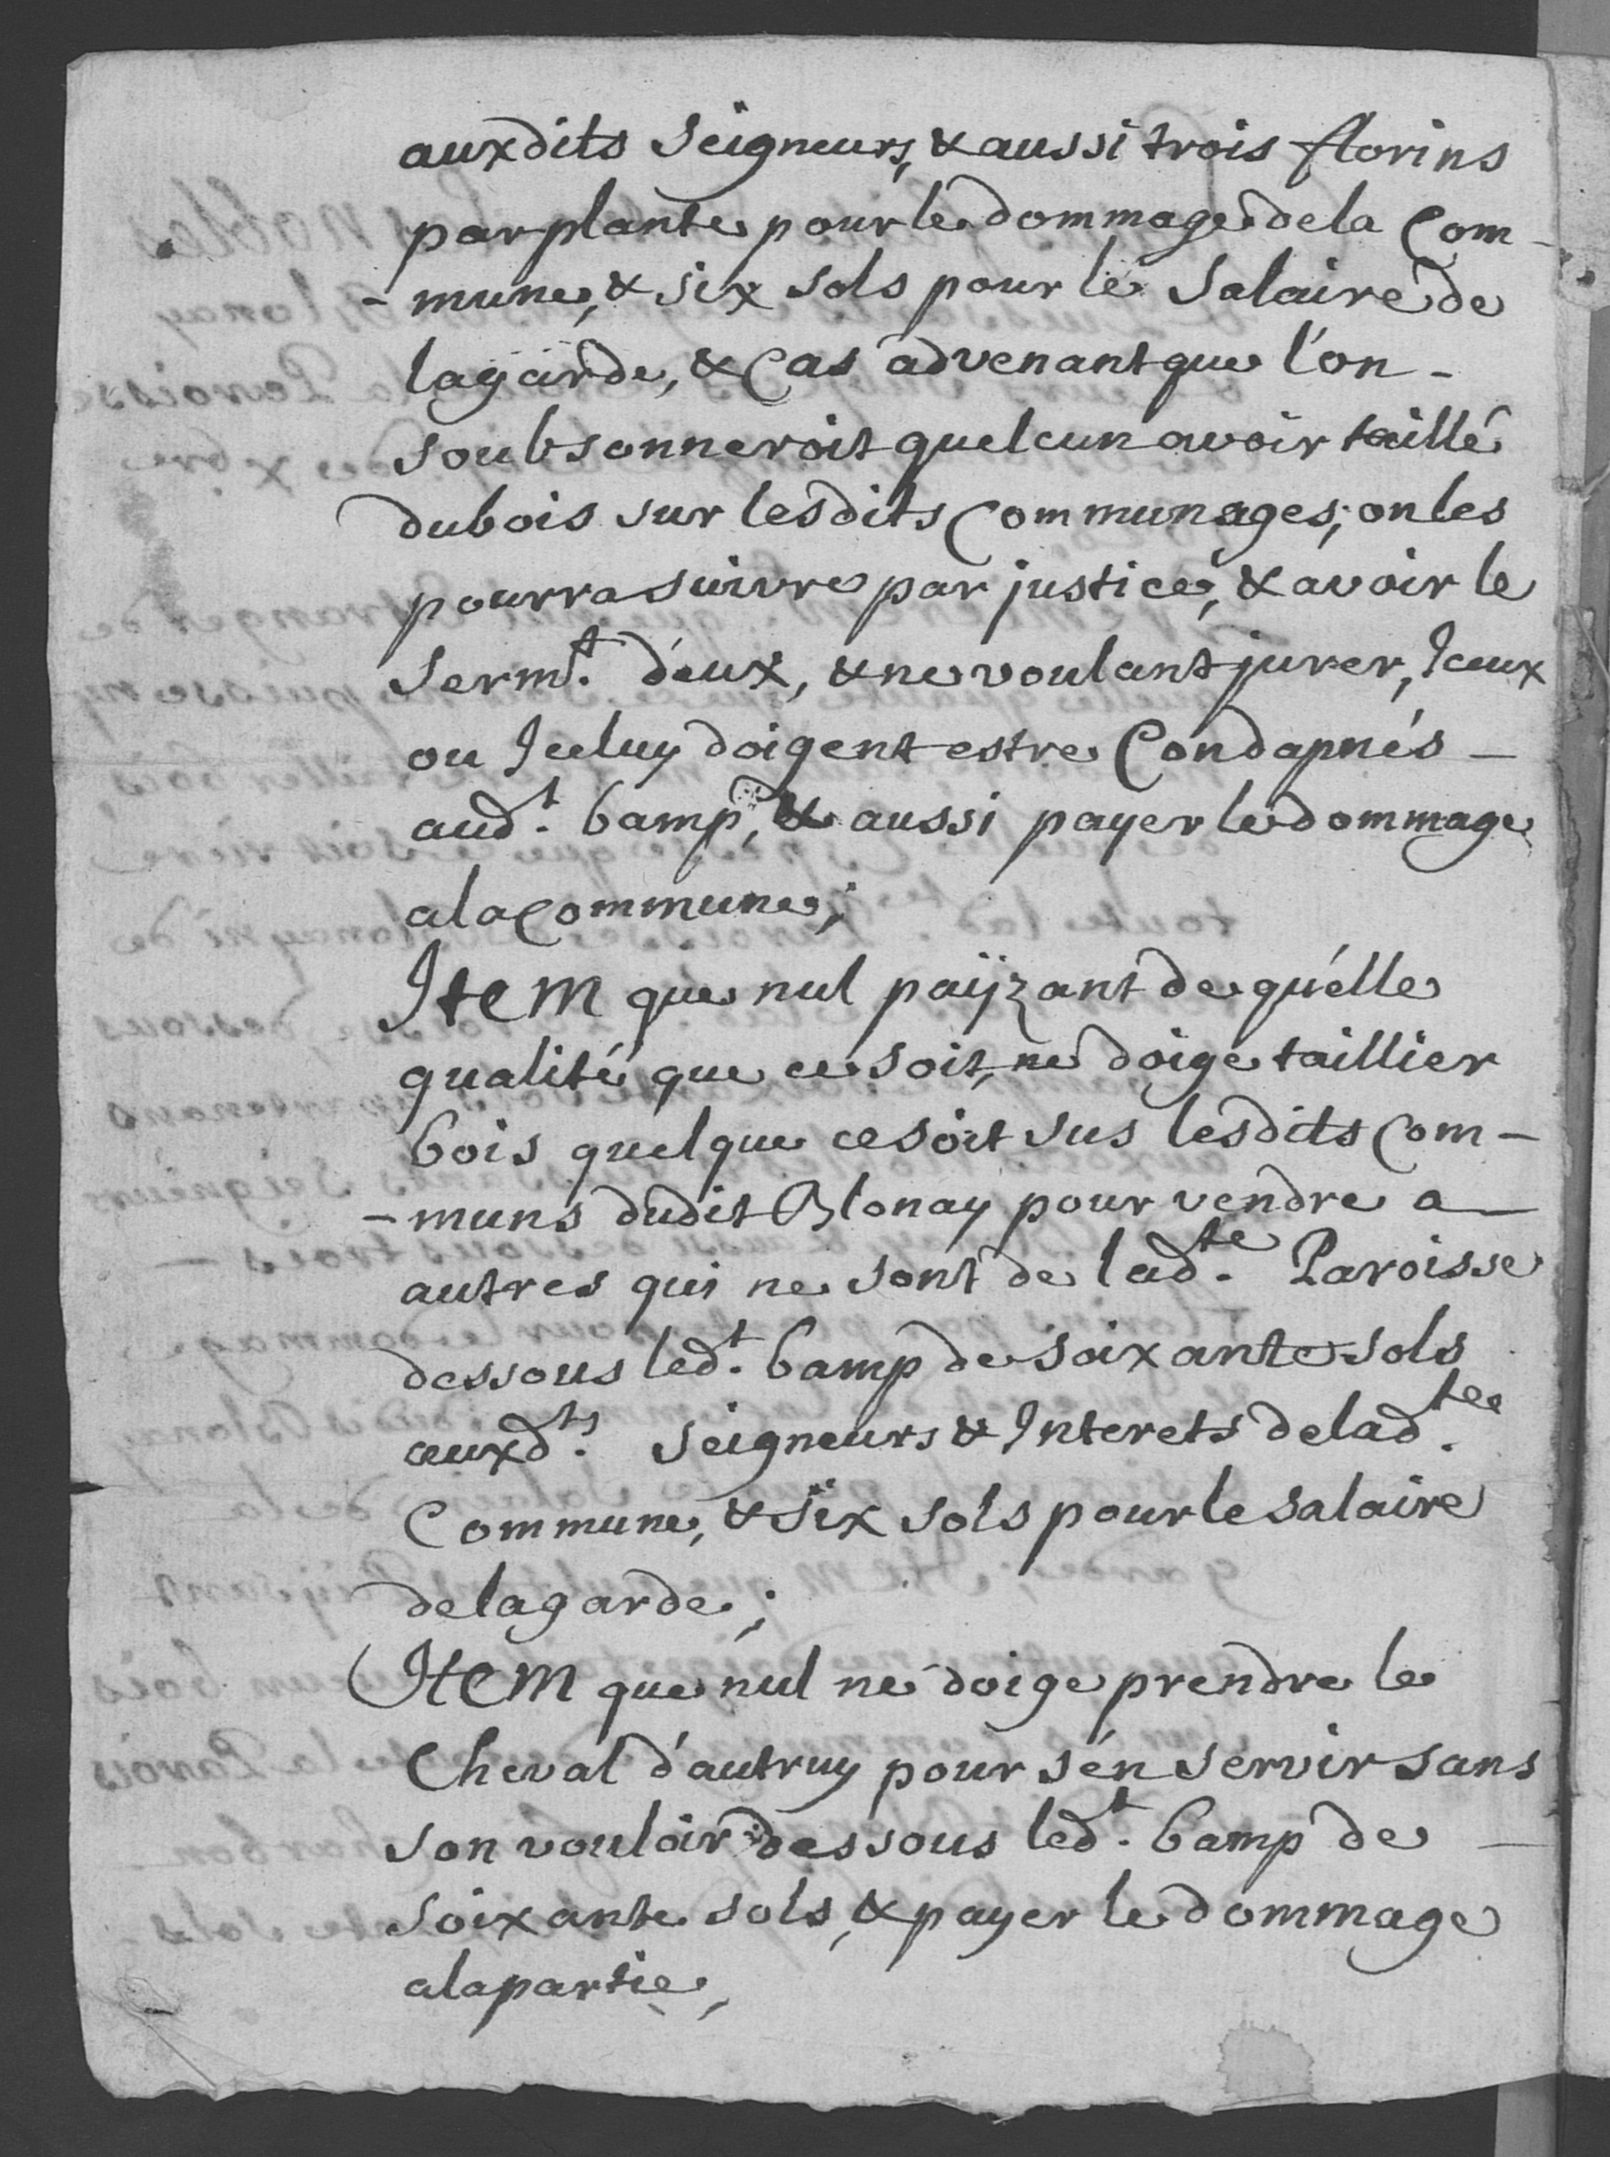 auxdits Seigneurs, & aussi trois florins
par plante pour le dommage de la Com-
-mune, & six sols pour le Salaire de
la garde, & Cas advenant que l'on -
soubsonneroit quelcun avoir taillé
du bois sur lesdits Communages; on les
pourra suivre par justice, & avoir le
Sermt. d'eux, & ne voulant jurer, Iceux
ou Iceluy doigent estre Condapnés -
audt. bamp, & aussi payer le dommage
a la Commune;
Item que nul paÿzant de qu'elle
qualité que ce soit, ne doige taillier
bois quel que ce soit sus lesdits Com-
-muns dudit Blonay pour vendre a
autres qui ne sont de ladte. Paroisse
dessous ledt. bamp de soixante sols
auxdts. Seigneurs & Interets de ladte.
Commune, & six sols pour le salaire
de la garde;
Item que nul ne doige prendre le
Cheval d'autruy pour s'en servir sans
son vouloir dessous ledt. bamp de -
soixante sols, & payer le dommage
a la partie,